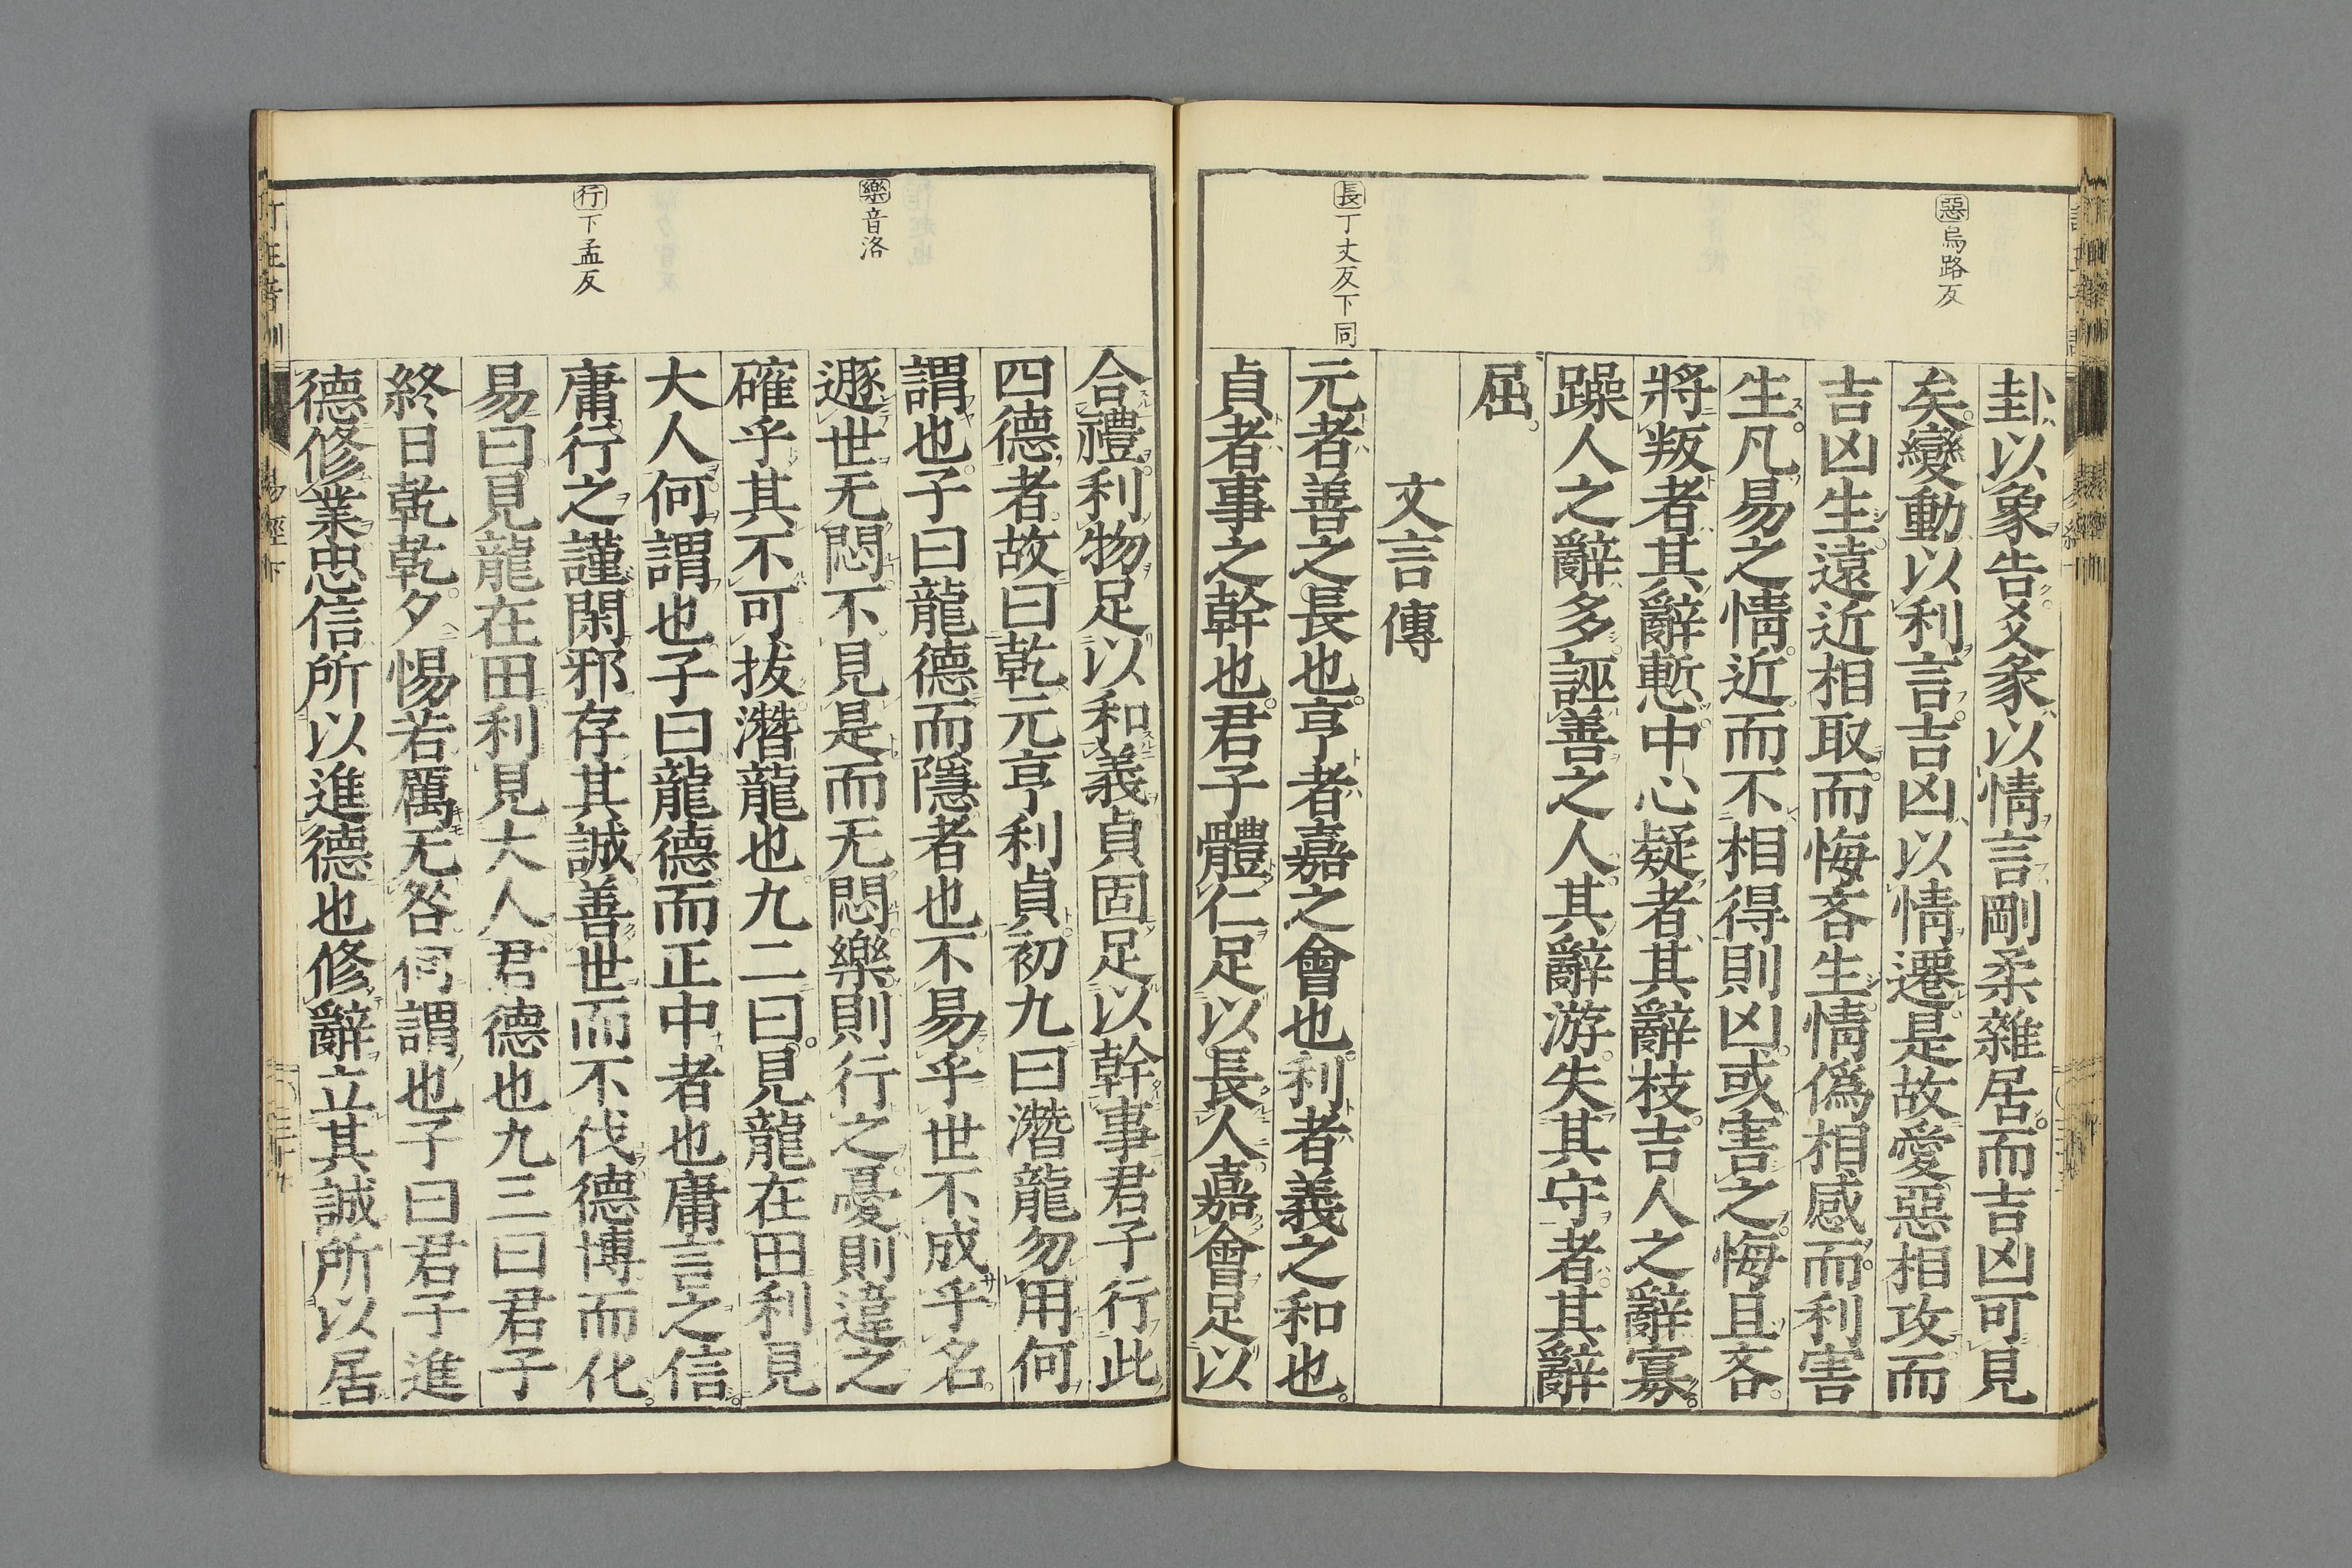 惡烏路反
長丁丈反下同
卦以象告爻彖以情言剛柔雜居而吉凶可見
矣變動以利言吉凶以情遷是故愛惡相攻而
吉凶生遠近相取而悔吝生情僞相感而利害
生凡易之情近而不相得則凶或害之悔且吝
將叛者其辭慙中心疑者其辭枝吉人之辭寡
躁人之辭多誣善之人其辭游失其守者其辭
屈
文言傳
元者善之長也亨者嘉之會也利者義之和也
貞者事之幹也君子體仁足以長人嘉會足以
樂音洛
行下孟反
合禮利物足以和義貞固足以幹事君子行此
四德者故曰乾元亨利貞初九曰潛龍勿用何
謂也子曰龍德而隱者也不易乎世不成乎名
遯世无悶不見是而无悶樂則行之憂則違之
確乎其不可拔潛龍也九二曰見龍在田利見
大人何謂也子曰龍德而正中者也庸言之信
庸行之謹閑邪存其誠善世而不伐德博而化
易曰見龍在田利見大人君德也九三曰君子
終日乾乾夕惕若厲无咎何謂也子曰君子進
德修業忠信所以進德也修辭立其誠所以居
易經下